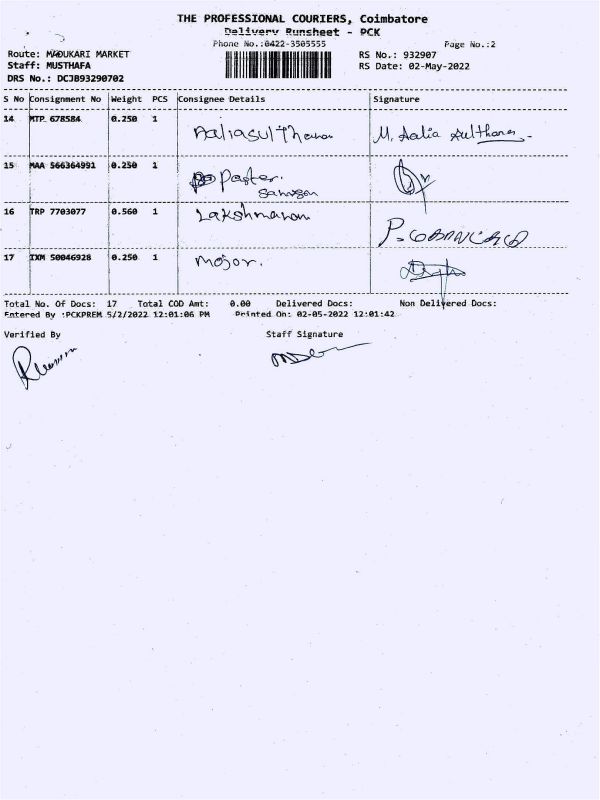 THE PROFESSIONAL COURIERS, Coimbatore
Delivery Runsheet - PCK
Phone No.:0422-3505555 Page No.:2
Route: MADUKARI MARKET RS No.: 932907
Staff: MUSTHAFA RS Date: 02-May-2022
DRS No.: DCJB93290702
S No Consignment No Weight PCS Consignee Details Signature
14 MTP 678584 0.250 1 Aaliasulthana M. Aalia Sulthana
15 MAA 566364991 0.250 1 Paster.
Samson
16 TRP 7703077 0.560 1 Lakshmanan
17 IXM 50046928 0.250 1 Major.
Total No. Of Docs: 17 Total COD Amt: 0.00 Delivered Docs: Non Delivered Docs:
Entered By :PCKPREM 5/2/2022 12:01:06 PM Printed On: 02-05-2022 12:01:42
Verified By Staff Signature